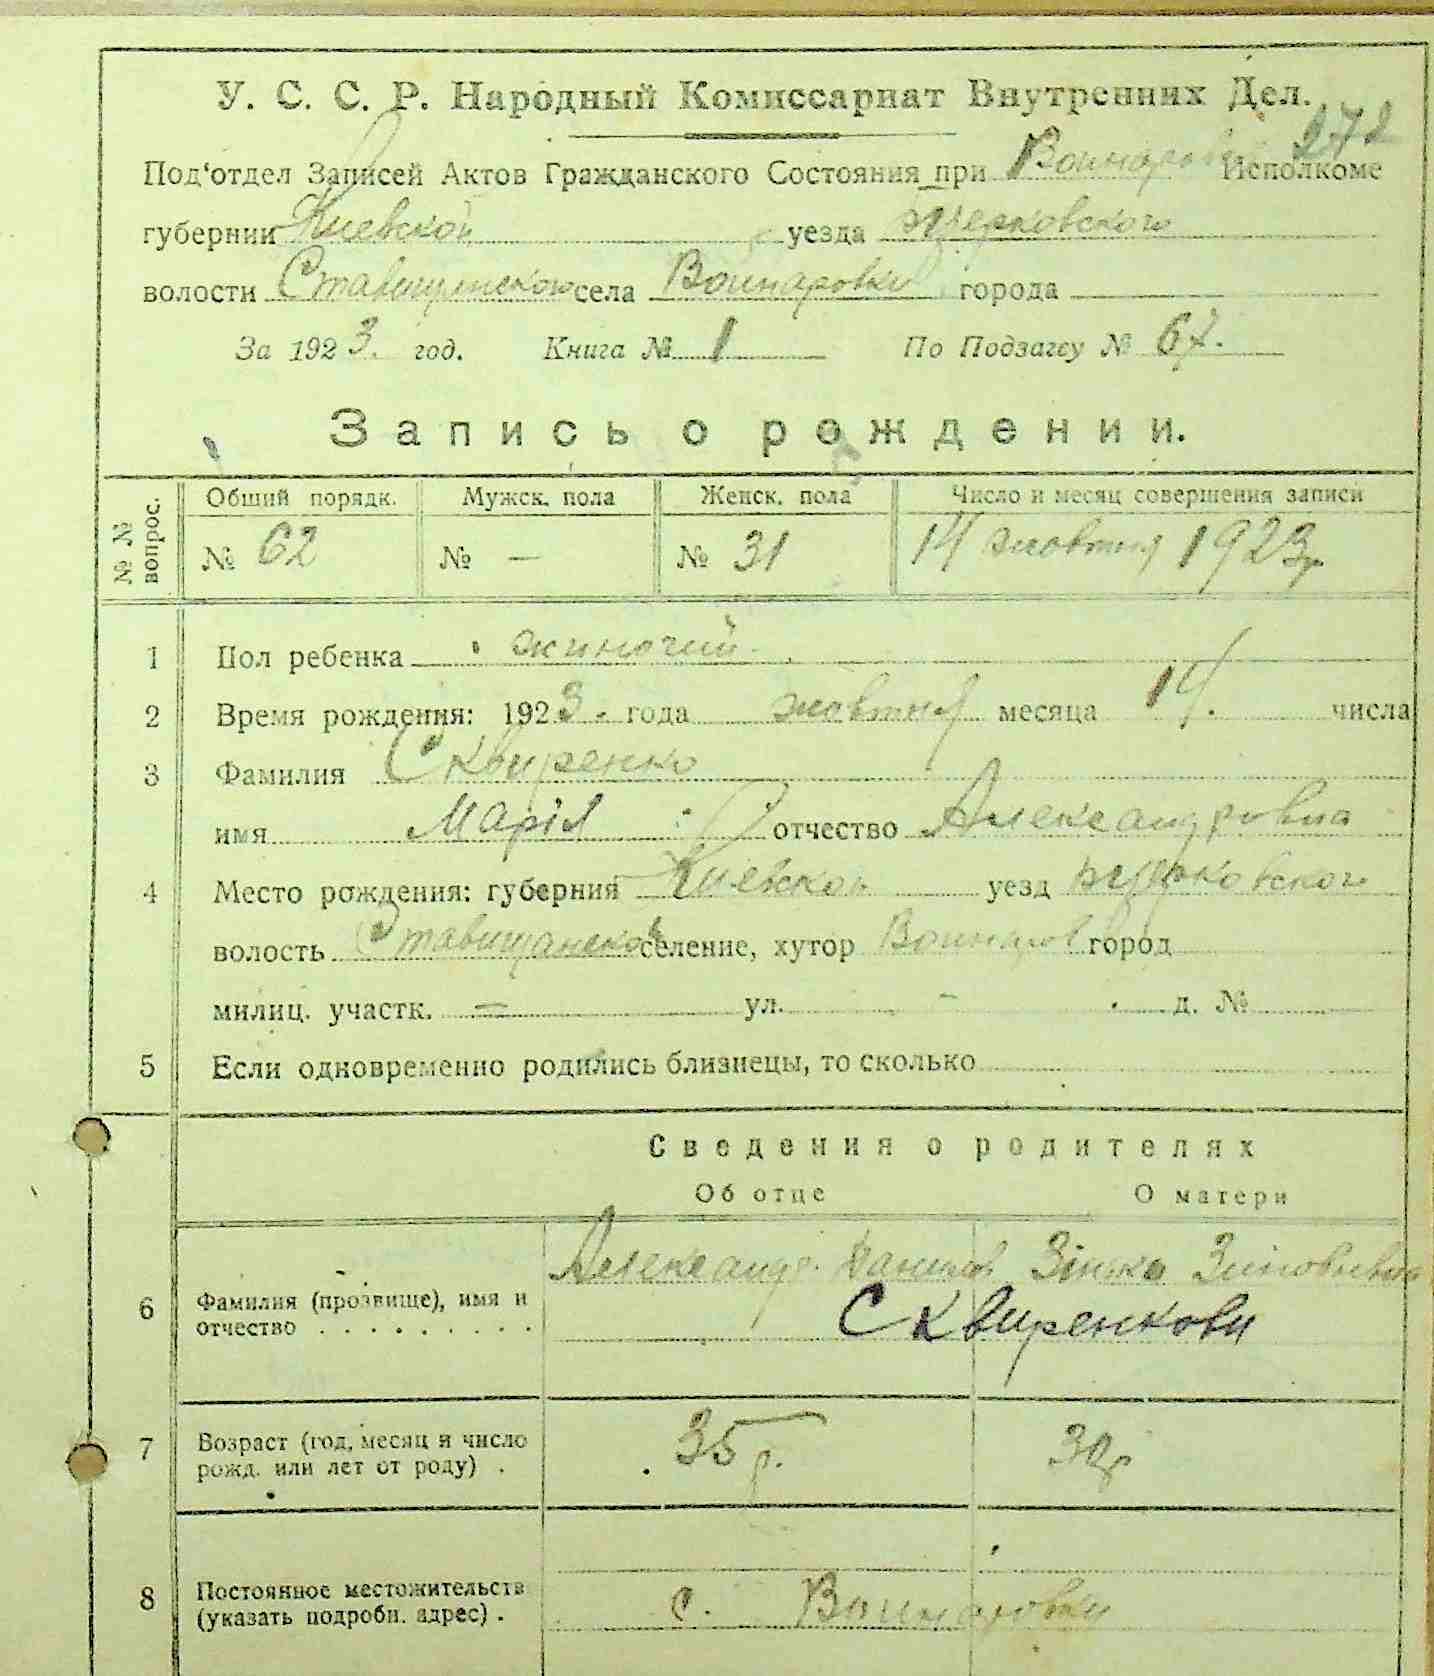 272
У. С. С. Р. Народный Комиссариат Внутренних Дел.
Под‘отдел Записей Актов Гражданского Состояния при Исполкоме
губернии Киевской уезда
волости села Войнаровки города
За 1923. год. Книга № 1 По Подзагсу № 67.
Запись о рождении.
№ № вопрос.
Общий порядк. Мужск. пола Женск. пола Число и месяц совершения записи
№ 62 № — № 31 14 жовтня 1923 р
1 Пол ребенка жиночий
2 Время рождения: 1923. года жовтня месяца 14. числа
3 Фамилия Сквиренко
имя Марія отчество Александровна
4 Место рождения: губерния Киевской уезд
волость Ставищанской селение, хутор город
милиц. участк. = ул. - д. №
5 Если одновременно родились близнецы, то сколько
Сведения о родителях
Об отце О матери
Александр Данилов Зінька Зиновьевна
6 Фамилия (прозвище), имя и
отчество . . . . . . . . . Сквиренкови
7 Возраст (год, месяц и число 35 р. 30 р
рожд. или лет от роду) .
8 Постоянное местожительств
(указать подробн. адрес) . с. Войнаровки